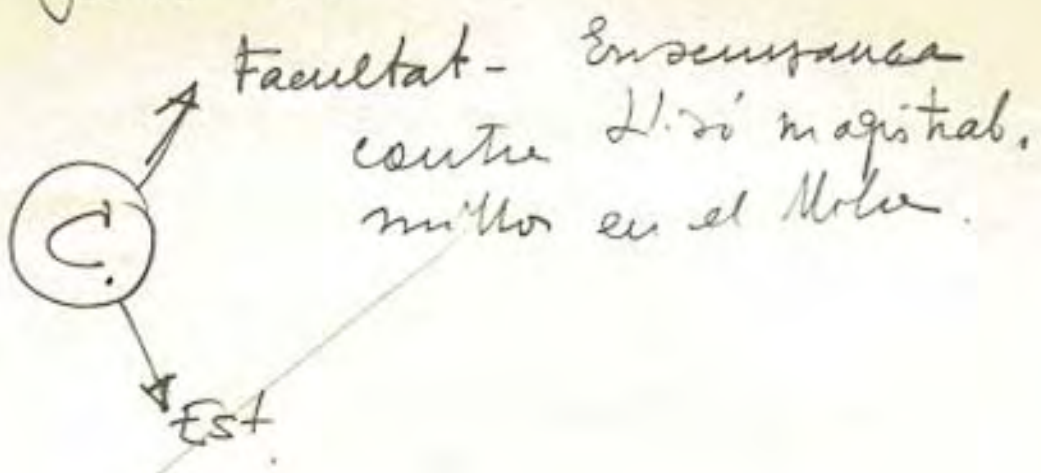 Facultat - Ensenyança
contra Lliçó magistral.
millor en el llibre.
C.
Est.